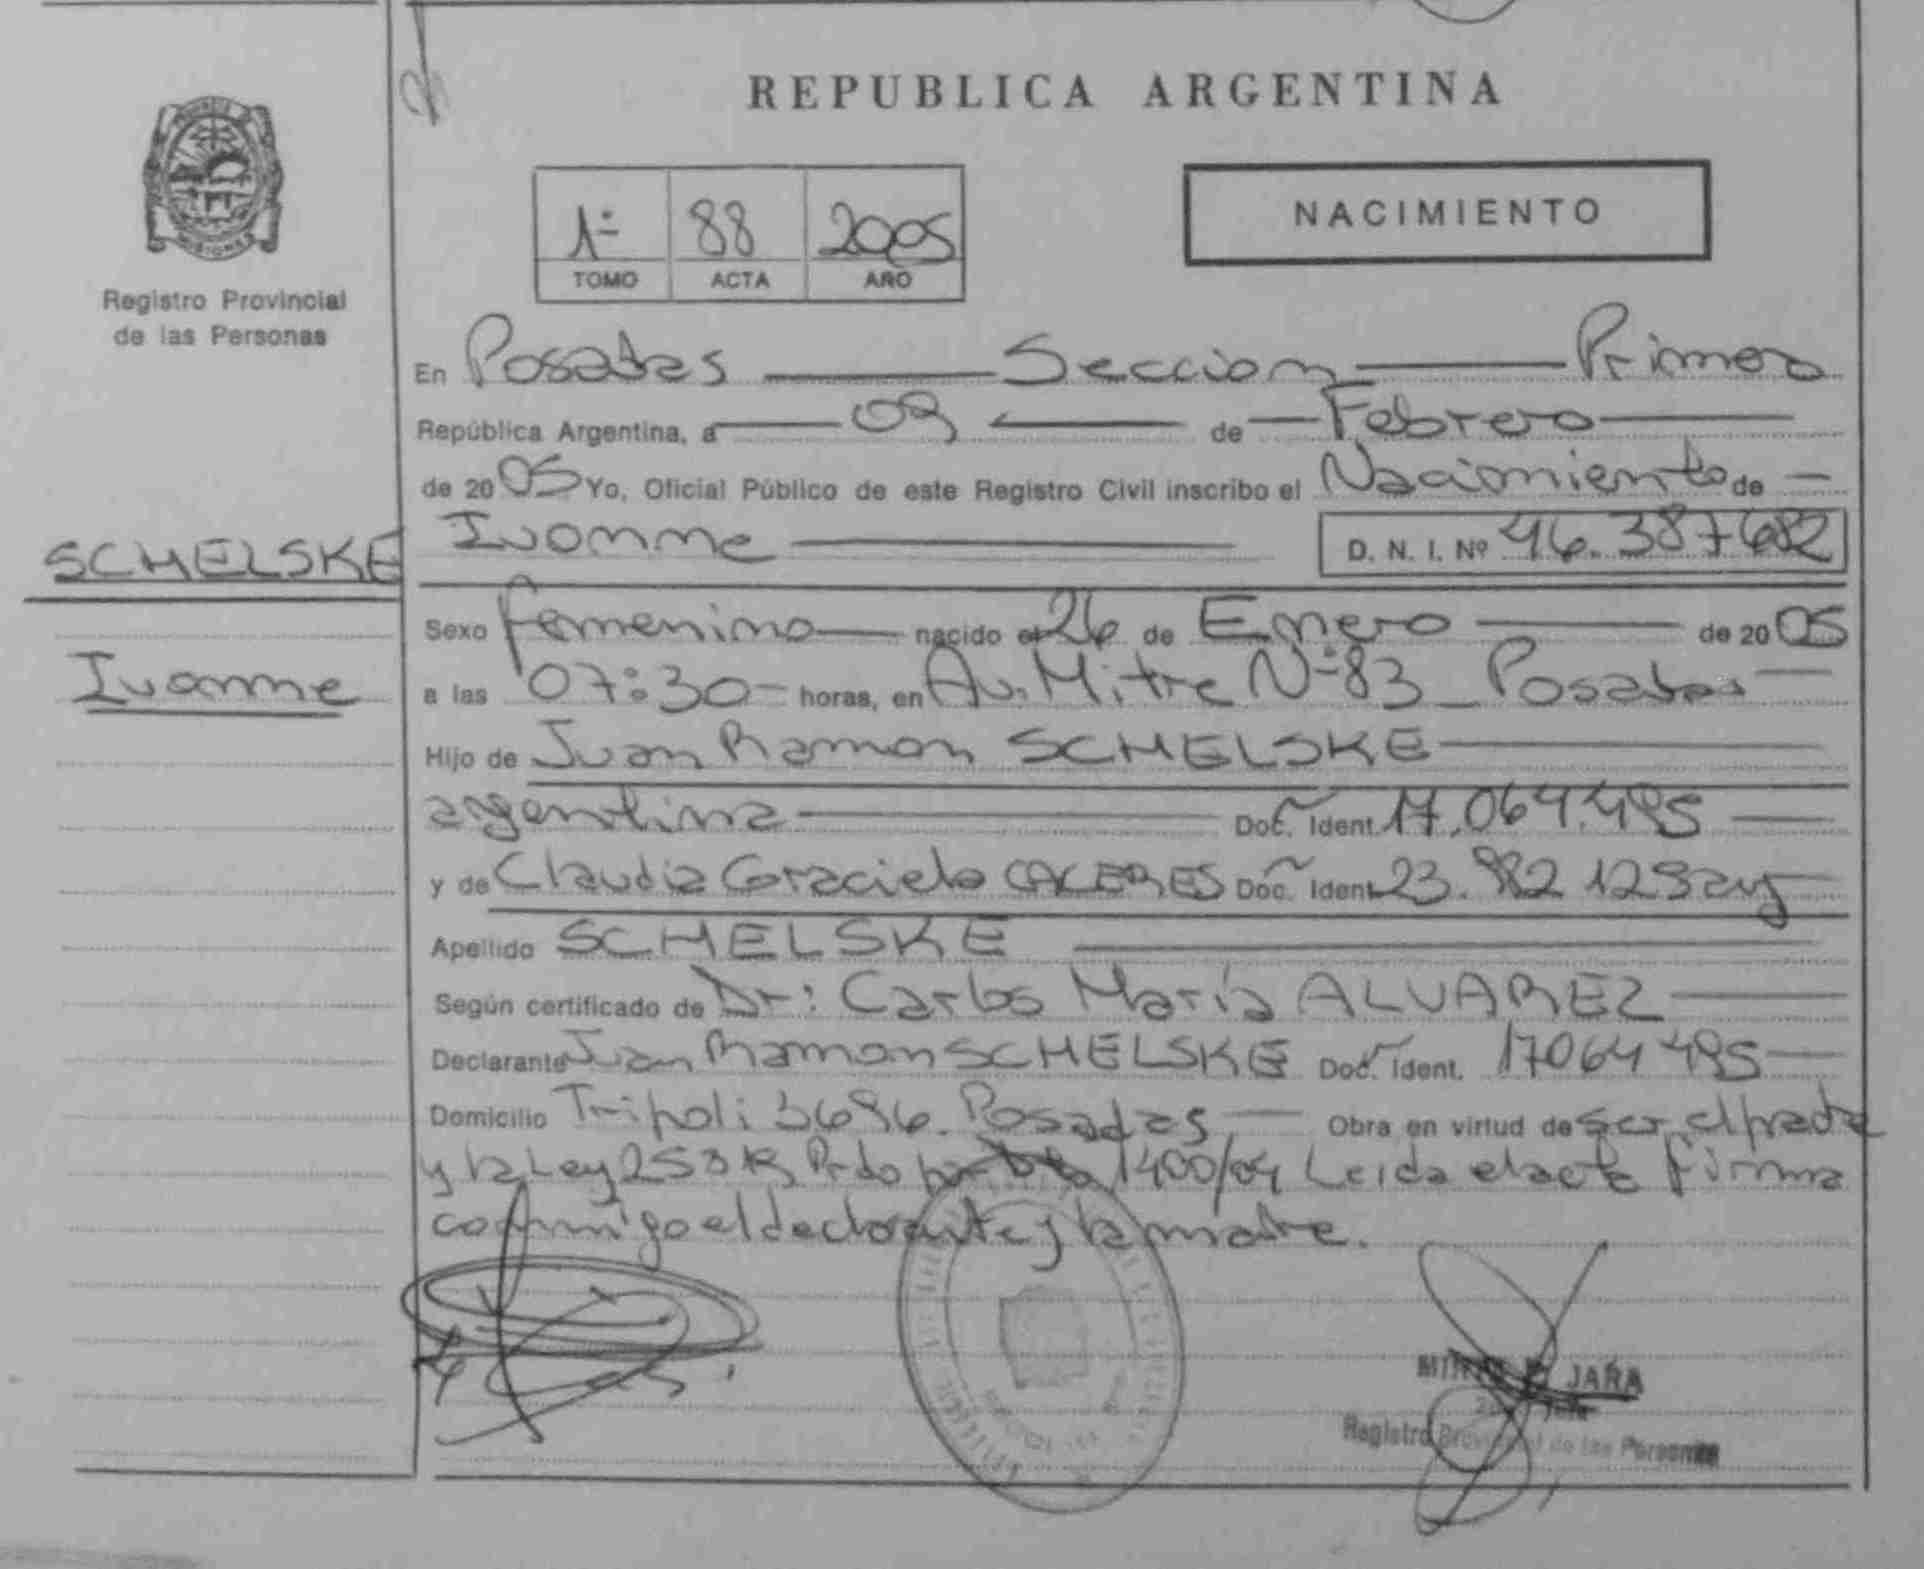 REPUBLICA ARGENTINA
Registro Provincial
de las Personas
1º 88 2005
TOMO ACTA AÑO
NACIMIENTO
En Posadas Seccion Primera
República Argentina, a 09 de Febrero
de 2005 Yo, Oficial Público de este Registro Civil inscribo el Nacimiento de
SCHELSKE
Ivonne
Ivonne D. N. I. Nº 46.387682
Sexo femenino nacido el 26 de Enero de 2005
a las 07:30 horas, en Av. Mitre Nº 83 Posadas
Hijo de Juan Ramon SCHELSKE
argentina Doc. Ident. 17.064.495
y de Claudia Graciela CACERES Doc. Ident. 23.982 129 arg
Apellido SCHELSKE
Según certificado de Dr: Carlos María ALVAREZ
Declarante Juan Ramon SCHELSKE Doc. Ident. 17064495
Domicilio Tripoli 3696. Posadas Obra en virtud de ser el padre
y la Ley 1400/04 Leida el acta firma
conmigo el declarante y la madre.
JARA
Registro Provincial de las Personas